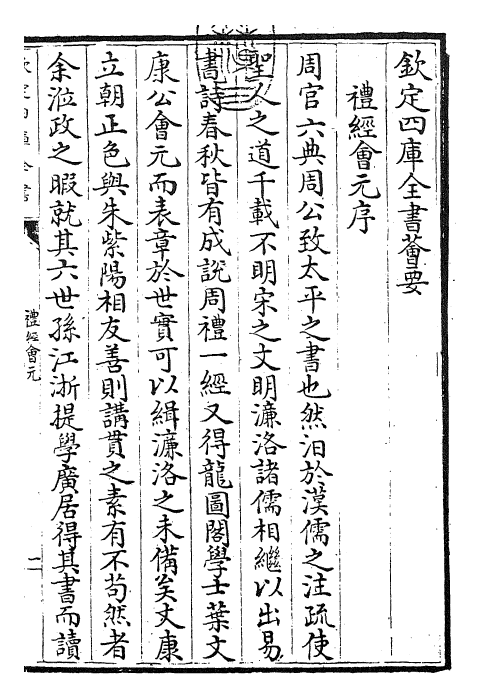 欽定四庫全書薈要
禮經會元序
周官六典周公致太平之書也然汩於漢儒之注疏使
聖人之道千載不明宋之文明濂洛諸儒相繼以出易
書詩春秋皆有成說周禮一經又得龍圖閣學士葉文
康公會元而表章於世實可以緝濂洛之未備矣文康
立朝正色與朱紫陽相友善則講貫之素有不苟然者
余涖政之暇就其六世孫江浙提學廣居得其書而讀
禮經會元